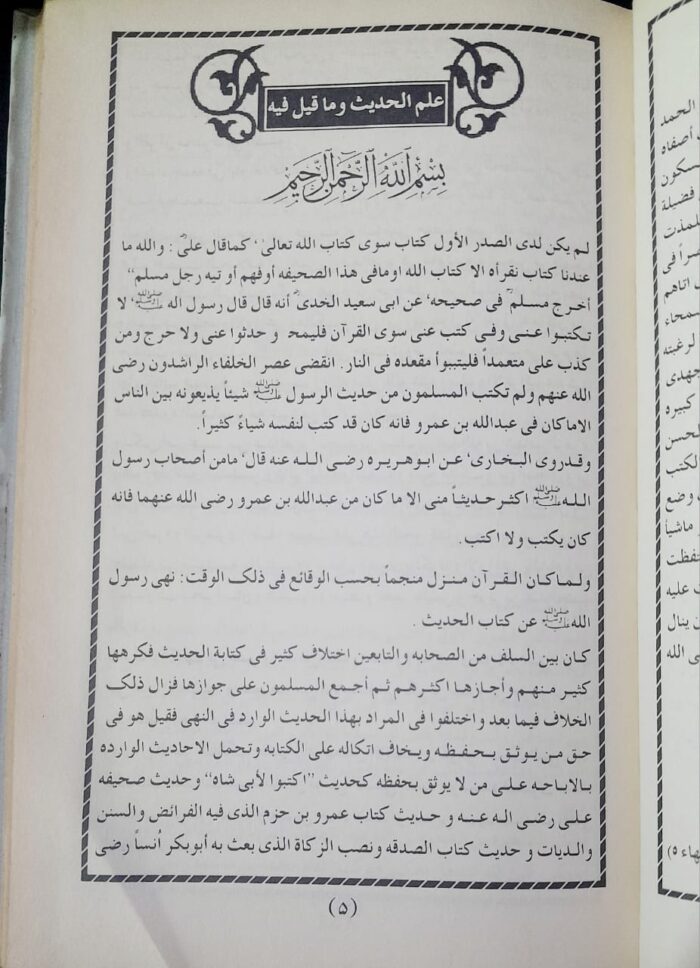 علم الحديث وما قيل فيه
بِسْمِ اللهِ الرَّحْمٰنِ الرَّحِيْمِ
لم يكن لدى الصدر الأول كتاب سوى كتاب الله تعالىٰ، كماقال علىؓ : والله ما
عندنا كتاب نقرأه الا كتاب الله اومافى هذا الصحيفه أوفهم أو تيه رجل مسلم"
أخرج مسلمؒ فى صحيحه، عن ابى سعيد الخدىؓ أنه قال قال رسول اله ﷺ، لا
تكتبوا عنى وفى كتب عنى سوى القرآن فليمحـ و حدثوا عنى ولا حرج ومن
كذب على متعمداً فليتبوأ مقعده فى النار. انقضى عصر الخلفاء الراشدون رضى
الله عنهم ولم تكتب المسلمون من حديث الرسول ﷺ شيئاً يذيعونه بين الناس
الاماكان فى عبدالله بن عمرو فانه كان قد كتب لنفسه شياءً كثيراً.
وقدروى البخارى، عن ابوهريره رضى الله عنه قال، مامن أصحاب رسول
الله ﷺ اكثر حديثاً منى الا ما كان من عبدالله بن عمرو رضى الله عنهما فانه
كان يكتب ولا اكتب.
ولما كان القرآن منزل منجماً بحسب الوقائع فى ذلک الوقت: نهى رسول
الله ﷺ عن كتاب الحديث .
كان بين السلف من الصحابه والتابعين اختلاف كثير فى كتابة الحديث فكرهها
كثير منهم وأجازها اكثرهم ثم أجمع المسلمون على جوازها فزال ذلک
الخلاف فيما بعد واختلفوا فى المراد بهذا الحديث الوارد فى النهى فقيل هو فى
حق من يوثق بحفظه ويخاف اتكاله على الكتابه وتحمل الاحاديث الوارده
بالاباحه على من لا يوثق بحفظه كحديث "اكتبوا لأبى شاه" وحديث صحيفه
على رضى اله عنه و حديث كتاب عمرو بن حزم الذى فيه الفرائض والسنن
والديات و حديث كتاب الصدقه ونصب الزكاة الذى بعث به أبوبكر أنساً رضى
(۵)
الحمد
أصفاه
فضيلة
لمذت
اتاهم
سمحاء
لرغبته
جهدى
كبيره
لحسن
لكتب
وضع
ماشياً
عليه
ينال
الله